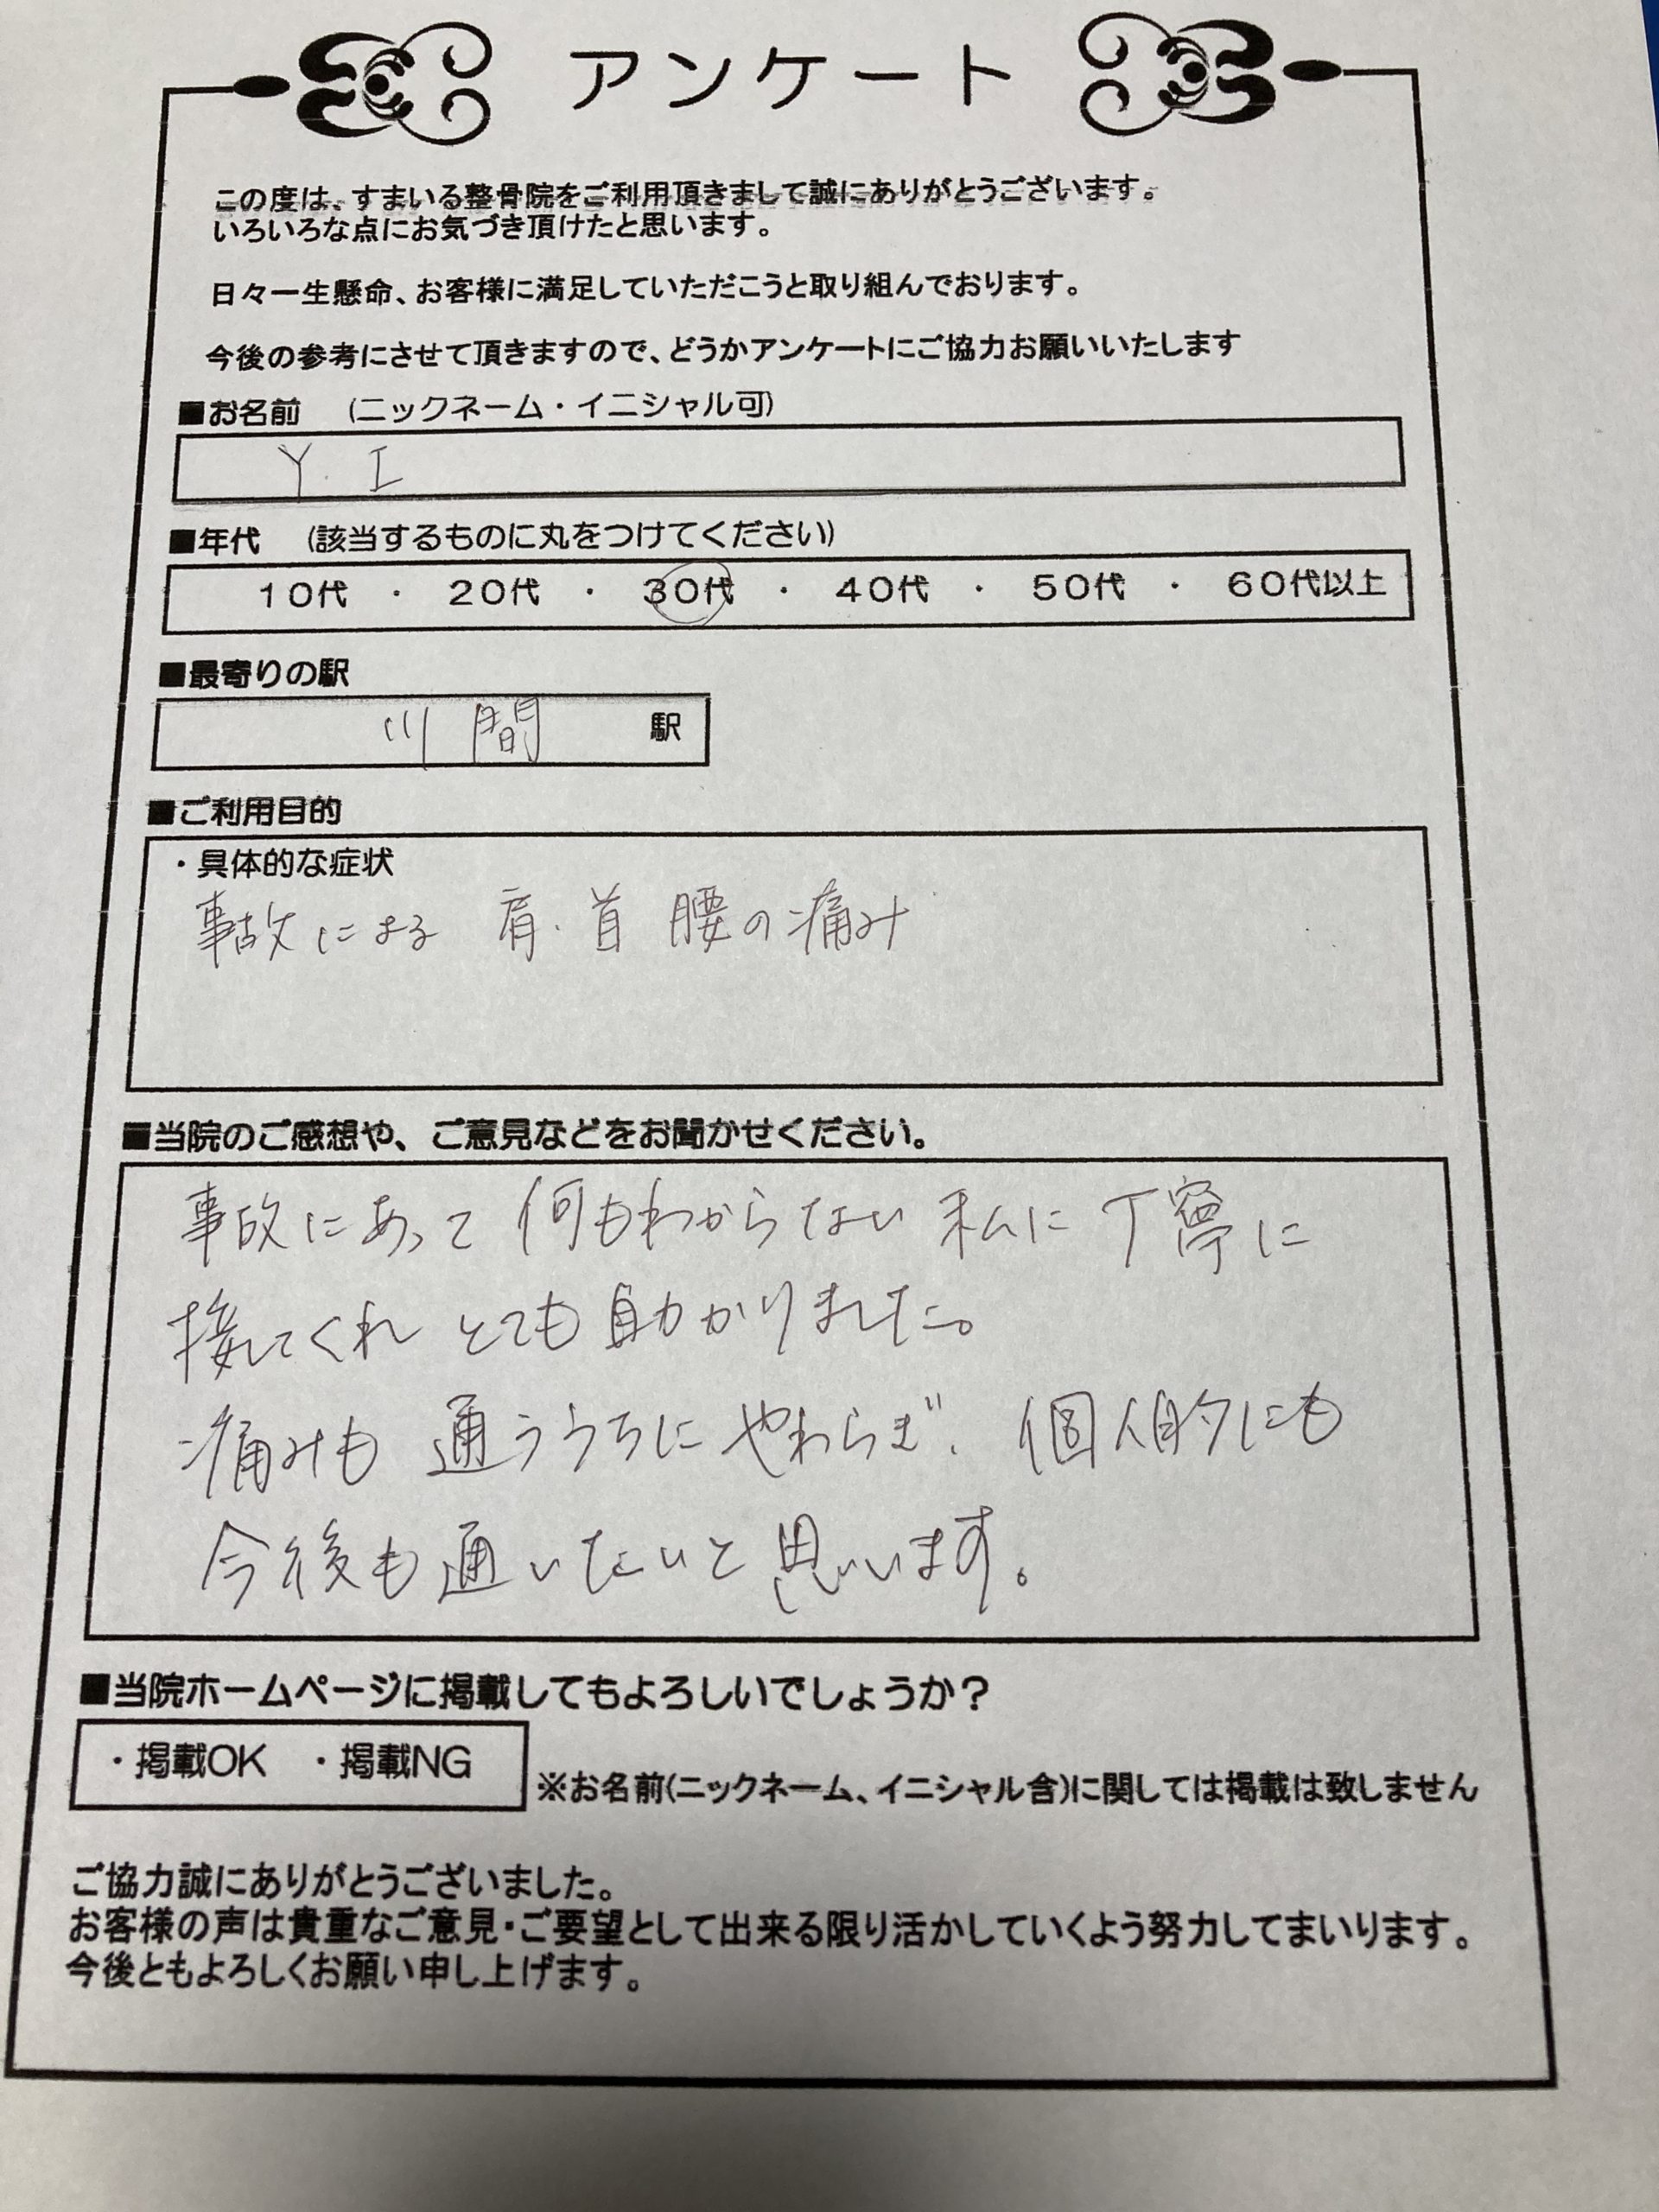 アンケート
この度は、すまいる整骨院をご利用頂きまして誠にありがとうございます。
いろいろな点にお気づき頂けたと思います。
日々一生懸命、お客様に満足していただこうと取り組んでおります。
今後の参考にさせて頂きますので、どうかアンケートにご協力お願いいたします
■お名前 (ニックネーム・イニシャル可)
Y.I
■年代 (該当するものに丸をつけてください)
10代 ・ 20代 ・ 30代 ・ 40代 ・ 50代 ・ 60代以上
■最寄りの駅
川間 駅
■ご利用目的
・具体的な症状
事故による 肩・首 腰の痛み
■当院のご感想や、ご意見などをお聞かせください。
事故にあって 何もわからない 私に 丁寧に
接してくれ とても 助かりました。
痛みも 通ううちに やわらぎ、個人的にも
今後も通いたいと思います。
■当院ホームページに掲載してもよろしいでしょうか？
・掲載OK ・掲載NG
※お名前(ニックネーム、イニシャル含)に関しては掲載は致しません
ご協力誠にありがとうございました。
お客様の声は貴重なご意見・ご要望として出来る限り活かしていくよう努力してまいります。
今後ともよろしくお願い申し上げます。